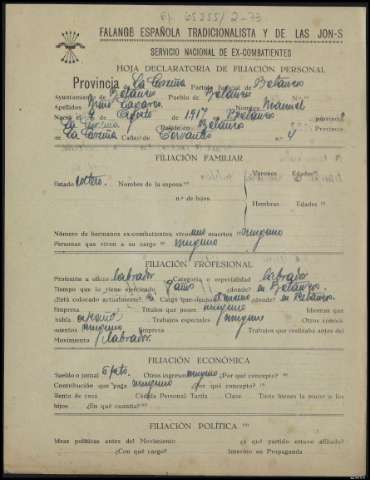 65255/2-73
FALANGE ESPAÑOLA TRADICIONALISTA Y DE LAS JON-S
SERVICIO NACIONAL DE EX-COMBATIENTES
HOJA DECLARATORIA DE FILIACIÓN PERSONAL
Provincia de La Coruña Partido Judicial de Betanzos
Ayuntamiento de Betanzos Pueblo de Betanzos
Apellidos Nombre Manuel
Nació el de Agosto de 1917 en Betanzos provincia
La Coruña Reside en Betanzos provincia
La Coruña Calle de Cervantes n.º 4
FILIACIÓN FAMILIAR
Varones Edades
Estado soltero. Nombres de la esposa
n.º de hijos.
Hembras Edades
Número de hermanos ex-combatientes vivos uno muertos ninguno
Personas que viven a su cargo ninguno
FILIACIÓN PROFESIONAL
Profesión u oficio labrador. Categoría o especialidad labrador
Tiempo que lo viene ejerciendo años ¿dónde? en Betanzos.
¿Está colocado actualmente? Si Cargo que desempeña el mismo ¿dónde? en Betanzos.
Títulos que posee ninguno Idiomas que
habla español Trabajos especiales ninguno Otros conocimientos
ninguno Empresa Trabajos que realizaba antes del
Movimiento labrador.
FILIACIÓN ECONÓMICA
Sueldo o jornal 6 pts. Otros ingresos ninguno ¿Por qué concepto?
Contribución que paga ninguno ¿por qué concepto?
Renta de casa Cédula Personal Tarifa Clase Tiene bienes la mujer o los
hijos ¿En qué cuantía?
FILIACIÓN POLÍTICA
Ideas políticas antes del Movimiento ¿a qué partido estuvo afiliado?
¿Con qué cargo? Intervino en Propaganda